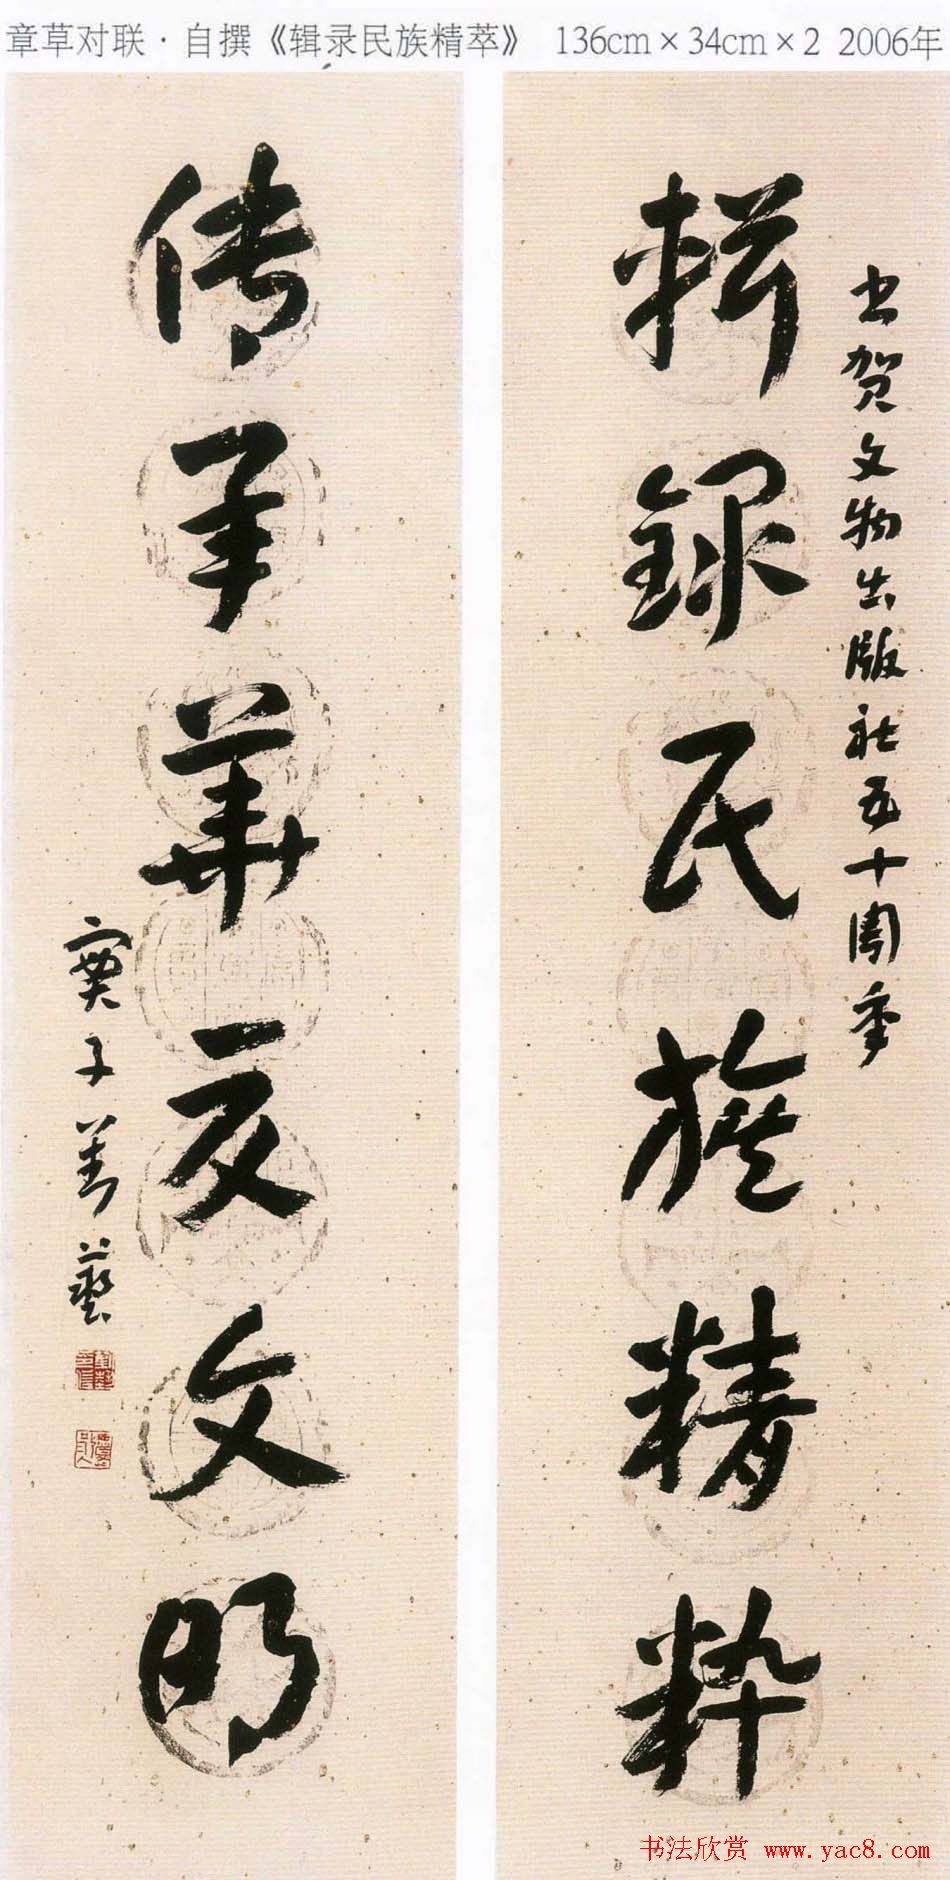 章草对联·自撰《辑录民族精萃》 136cm×34cm×2 2006年
书贺文物出版社五十周年
辑録民族精粹
传承華夏文明
书法欣赏 www.yac8.com